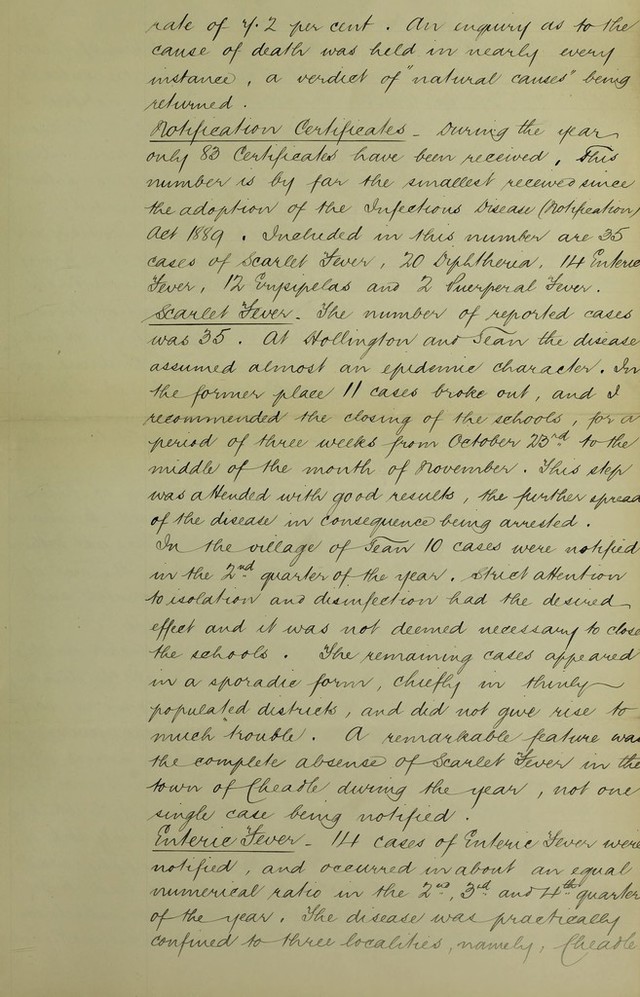 rate of 7.2 per cent. An enquiry as to the
cause of death was held in nearly every
instance, a verdict of "natural causes" being
returned.
Notification Certificates - During the year
only 83 Certificates have been received, This
number is by far the smallest received since
the adoption of the Infectious Disease (Notification)
Act 1889. Included in this number are 35
cases of Scarlet Fever, 20 Diphtheria, 14 Enteric
Fever, 12 Erysipelas and 2 Puerperal Fever.
Scarlet Fever - The number of reported cases
was 35. At Hollington and Tean the disease
assumed almost an epidemic character. In
the former place 11 cases broke out, and I
recommended the closing of the schools, for a
period of three weeks from October 23rd to the
middle of the month of November. This step
was attended with good results, the further spread
of the disease in consequence being arrested.
In the village of Tean 10 cases were notified
in the 2nd quarter of the year. Strict attention
to isolation and disinfection had the desired
effect and it was not deemed necessary to close
the schools. The remaining cases appeared
in a sporadic form, chiefly in thinly
populated districts, and did not give rise to
much trouble. A remarkable feature was
the complete absense of Scarlet Fever in the
town of Cheadle during the year, not one
single case being notified.
Enteric Fever - 14 cases of Enteric Fever were
notified, and occurred in about an equal
numerical ratio in the 2nd, 3rd and 4th quarter
of the year. The disease was practically
confined to three localities, namely, Cheadle